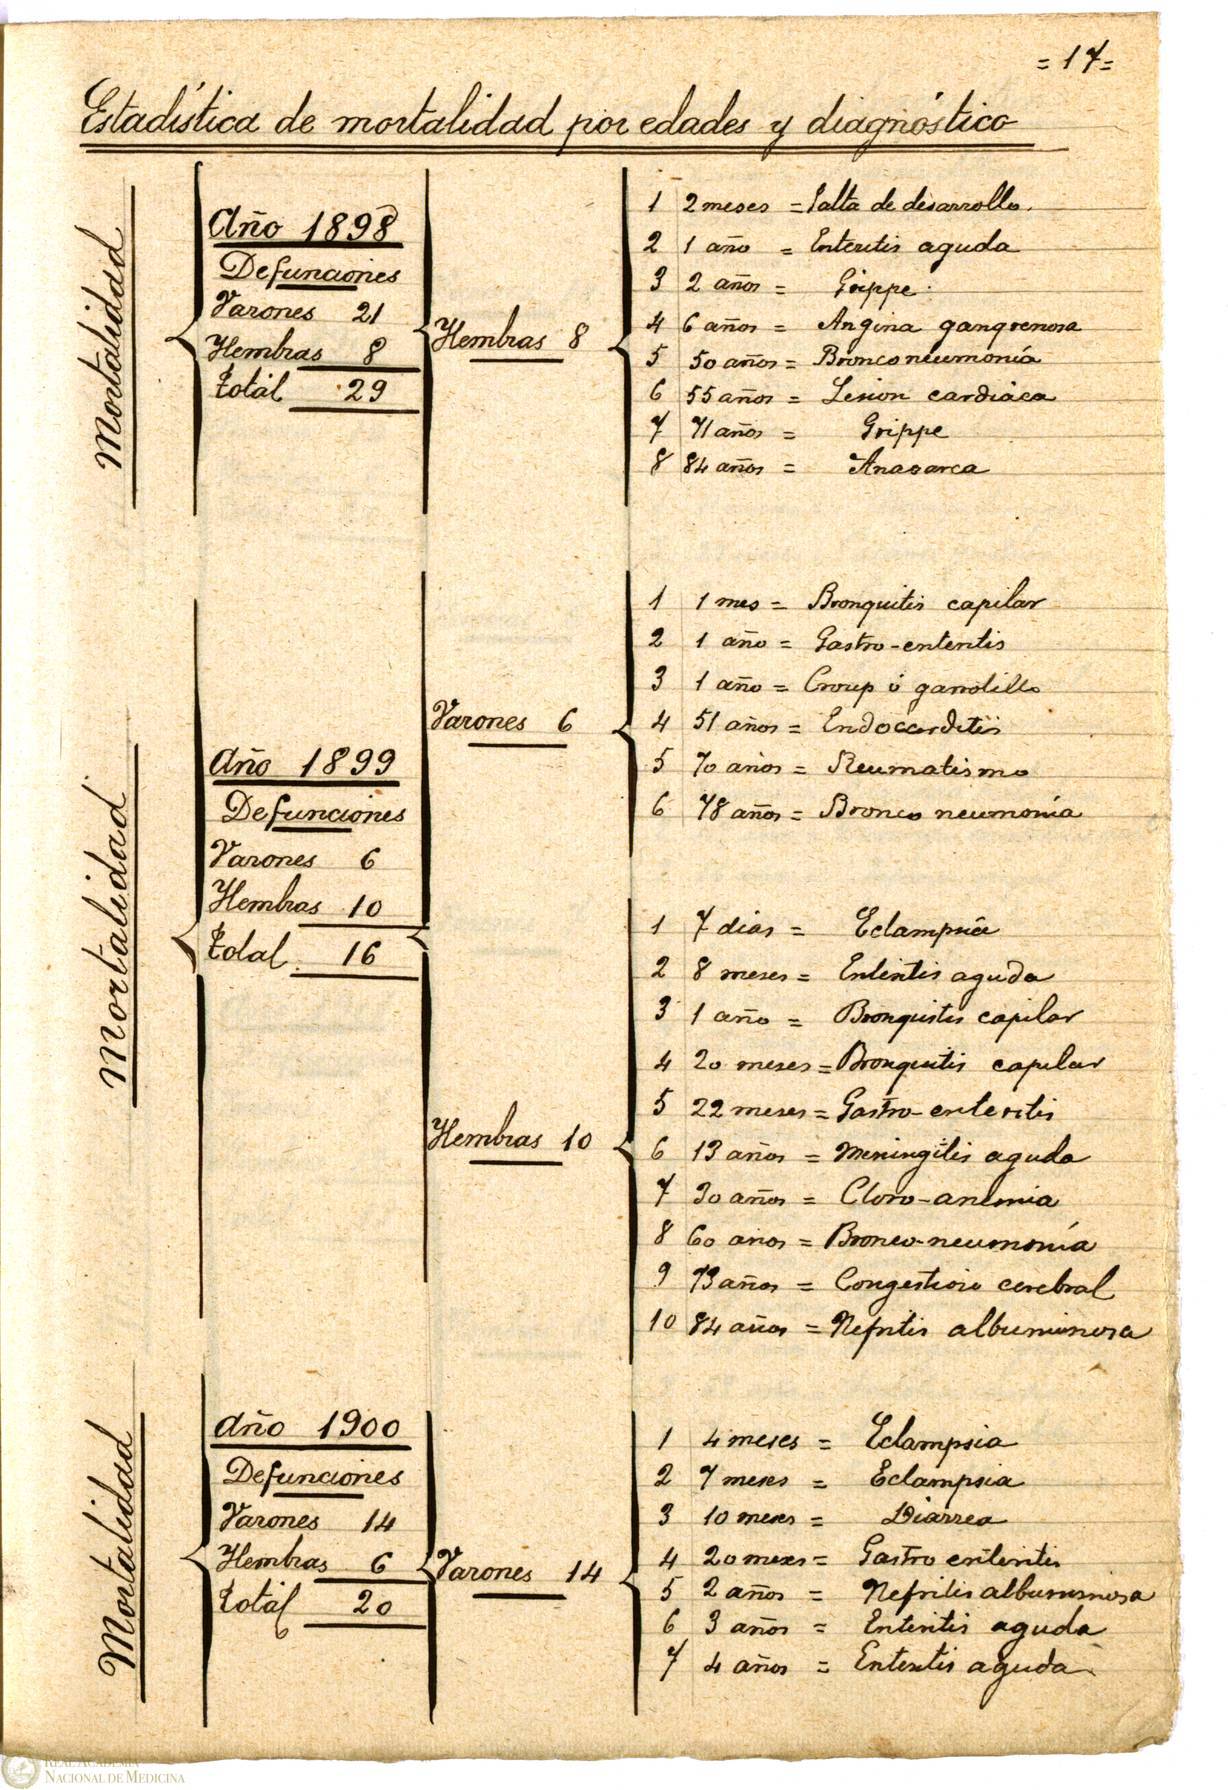 = 17 =
Estadística de mortalidad por edades y diagnóstico
Mortalidad
Año 1898
Defunciones
Varones 21
Hembras 8
total 29
Hembras 8
1 2 meses = Falta de desarrollo.
2 1 año = Enteritis aguda
3 2 años = Grippe.
4 6 años = Angina gangrenosa
5 50 años = Bronco neumonía
6 55 años = Lesion cardiáca
7 71 años = Grippe
8 84 años = Anasarca
Mortalidad
Año 1899
Defunciones
Varones 6
Hembras 10
total 16
Varones 6
1 1 mes = Bronquitis capilar
2 1 año = Gastro-enteritis
3 1 año = Croup ó garrotillo
4 51 años = Endocarditis
5 70 años = Reumatismo
6 78 años = Bronco neumonía
Hembras 10
1 7 dias = Eclampsia
2 8 meses = Enteritis aguda
3 1 año = Bronquitis capilar
4 20 meses = Bronquitis capilar
5 22 meses = Gastro-enteritis
6 13 años = Meningitis aguda
7 30 años = Cloro-anemia
8 60 años = Bronco-neumonía
9 73 años = Congestion cerebral
10 84 años = Nefritis albuminosa
Mortalidad
Año 1900
Defunciones
Varones 14
Hembras 6
total 20
Varones 14
1 4 meses = Eclampsia
2 7 meses = Eclampsia
3 10 meses = Diarrea
4 20 meses = Gastro enteritis
5 2 años = Nefritis albuminosa
6 3 años = Enteritis aguda
7 4 años = Enteritis aguda
REAL ACADEMIA
NACIONAL DE MEDICINA